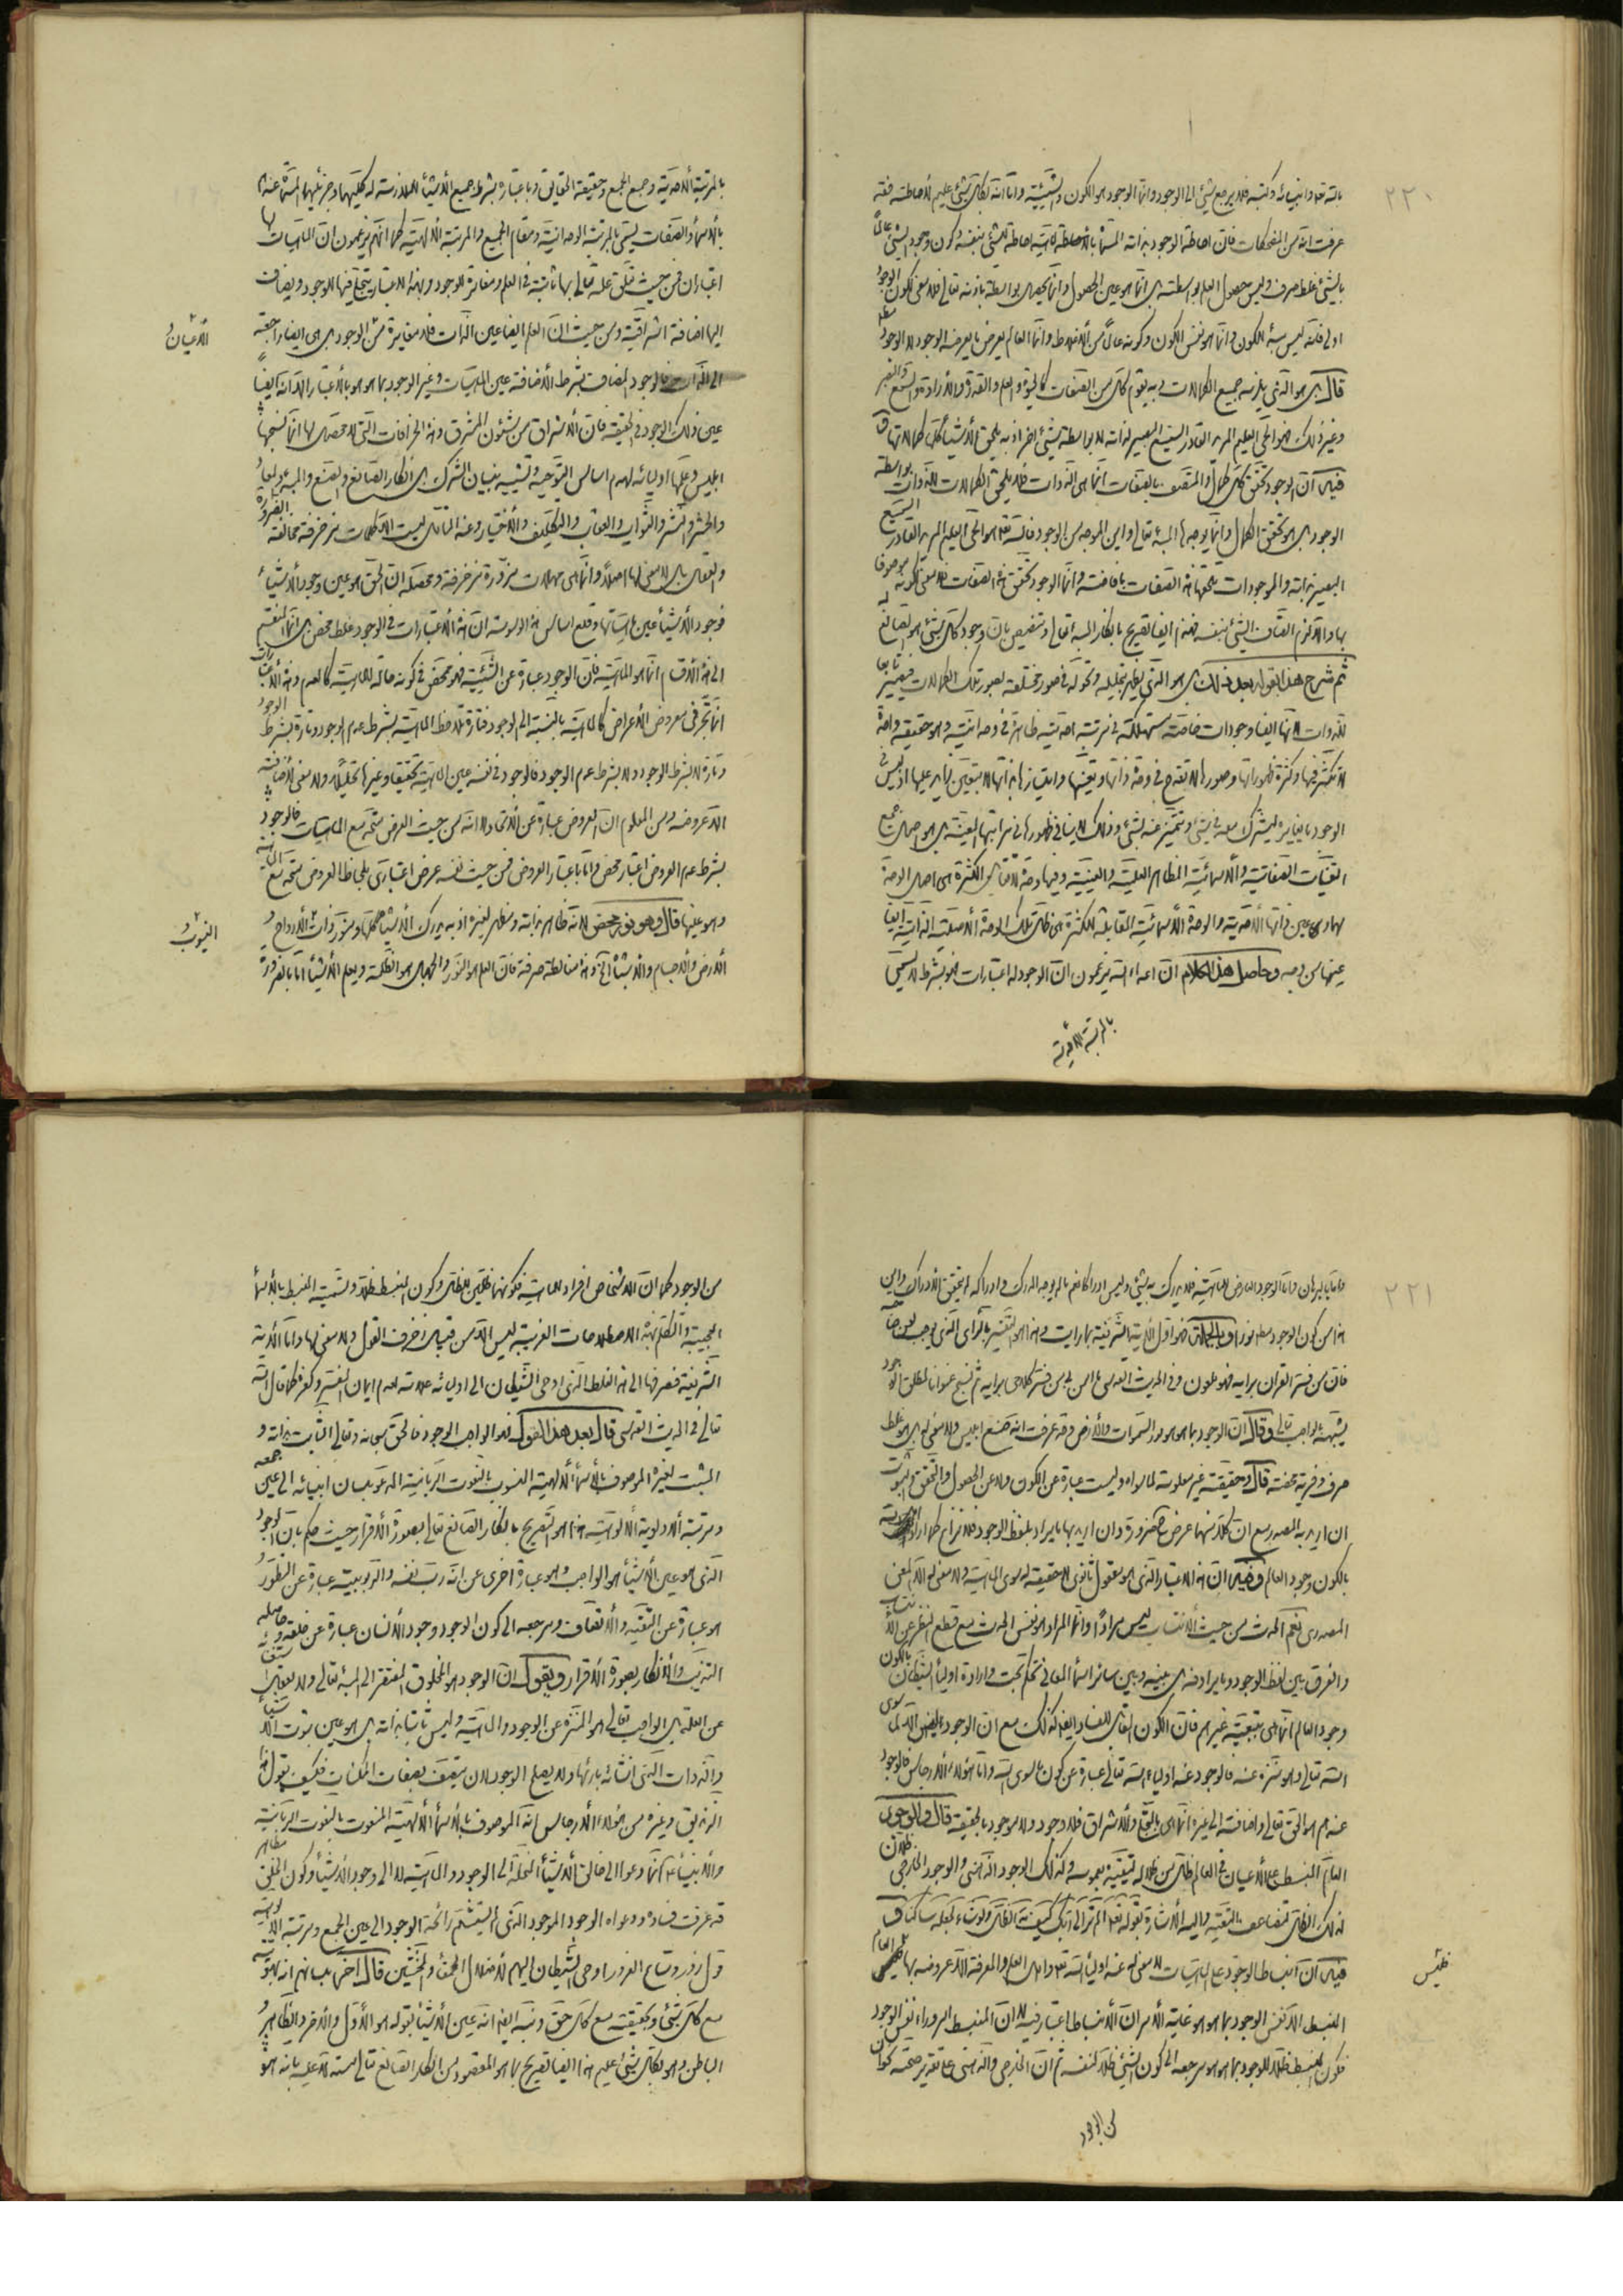 ٢٢٠
بالله تعالى وانبيائه وكتبه فلا يرجع شيئ الى الوجود وانما الوجود هو الكون والشيئية واما انه بكل شيئ عليم لاحاطته فقد
عرفت انه من المضحكات فان احاطة الوجود بذاته المسماة بالاحاطة احاطة الشيئ بنفسه وكون وجود الشيئ عالماً
بالشيئ غلط صرف وليس حصول العلم بواسطته بل انما هو عين الحصول وانما يحصل بواسطة باذنه تعالى فلا معنى لكون الوجود
اولى فانه ليس سبة الكون وانما هو نفس الكون وكونه عالماً من الاغلاط وانما العالم يعرض ما يعرضه الوجود لا الوجود
قال بل هو الذي يلزمه جميع الكمالات وبه يقوم كل من الصفات كالحيوة والعلم والقدرة والارادة والسمع والبصر
وغير ذلك فهو الحي العليم المريد القادر السميع البصير لذاته لا بواسطة شيئ اخر اذ به يلحق الاشياء كلها كمالاتها
فيه ان الوجود تحقق كل كمال والمتصف بالصفات انما هي الذوات فلا يلحق الكمالات للذوات بواسطة
الوجود بل هو تحقق الكمال وانما يوجدها المبدء تعالى واين الموجد من الوجود فالله تعالى هو الحي العليم المريد القادر السميع
البصير بذاته والموجودات تلحقها هذه الصفات بافاضته وانما الوجود تحقق هذه الصفات فلا معنى لكونه موصوفا
بها والا لزم اتصاف الشيئ بنفسه فهذا ايضا تصريح بانكار المبدء تعالى وتنصيص بان وجود كل شيئ هو الصانع له
ثم شرح هذا بقوله بعد ذلك بل هو الذي يظهر بتجليه وتحوله في صور مختلفة بصور تلك الكمالات فيصير تابعا
للذوات لانها ايضا وجودات خاصة مستهلكة في مرتبة احديته ظاهرة في واحديته وهو حقيقة واحدة
لا تكثر فيها وكثرة ظهوراتها وصورها لا تقدح في وحدة ذاتها وتعينها وامتيازها بذاتها لا بتعين زايد عليها اذ ليس في
الوجود ما يغايره ليشترك معه في شيئ ويتميز عنه بشيئ وذلك لا ينافي ظهورها في مراتبها المتعينة بل هو اصل جميع
التعينات الصفاتية والاسمائية والمظاهر العلمية والعينية وفيها وحدة لا تقابل الكثرة هي اصل الوحدة
المقابلة لها وهي عين ذاتها الاحدية والوحدة الاسمائية المقابلة للكثرة هي ظل تلك الوحدة الاصلية الذاتية ايضا
عينها من وجه وحاصل هذا الكلام ان اعداء الله يزعمون ان الوجود له اعتبارات فهو بشرط لا يسمى
بالمرتبة الاحدية
بالمرتبة الاحدية وجمع الجمع وحقيقة الحقايق وباعتباره بشرط جميع الاشياء اللازمة له كليها وجزئيها المسماة عندهم
بالاسماء والصفات يسمى بالمرتبة الواحدانية ومقام الجمع والمرتبة الالهية كما انهم يزعمون ان الماهيات لها
اعتباران فمن حيث تعلق علمه تعالى بها ثابتة في العلم ومغايرة للوجود وبهذا الاعتبار يتجلى فيها الوجود ويضاف
اليها اضافة اشراقية ومن حيث ان العلم ايضا عين الذات فلا مغايرة من الوجود بل هي ايضا راجعة
الاعيان
الى الذات فالوجود المضاف بشرط الاضافة عين الماهيات وغير الوجود بما هو هو بالاعتبار الا انه ايضاً
عين ذلك الوجود في الحقيقة فان الاشراق من شئون المشرق وهذه الخرافات التي لا محصل لها انما نسجها
ابليس وعلمها اوليائه لهدم اساس التوحيد وتشييد بنيان الشرك بل انكار الصانع والصنع والمبدء والمعاد
والحشر والنشر والثواب والعقاب والتكليف والاختيار وعند التامل ليست الا كلمات مزخرفة مخالفة للضرورة
والعقل بل لا معنى لها اصلاً وانما هي مهملات مزورة مزخرفة ومحصله ان الحق هو عين وجود الاشياء
فوجود الاشياء عين ماهياتها وقلع اساس هذه الوسوسة ان هذه الاعتبارات في الوجود غلط محض بل انما المنقسم
الى هذه الاقسام انما هو الماهية فان الوجود عبارة عن الشيئية فهو متمحض في كونه حالة للماهية كالعدم وهذه الاعتبارات
انما تجري في معروض الاعراض كالماهية بالنسبة الى الوجود فتارة تلاحظ الماهية بشرط عدم الوجود وتارة بشرط الوجود
وتارة لا بشرط الوجود ولا بشرط عدم الوجود فالوجود في نفسه عين الماهية تحقيقا وغيرها تحليلاً ولا معنى لاضافته
الا عروضه ومن المعلوم ان العروض عبارة عن الاتحاد لا انه من حيث العرض متحد مع الماهيات فالوجود
بشرط عدم العروض اعتبار محض واما باعتبار العروض فمن حيث نفسه عرض اعتباري بلحاظ العروض متحد مع الماهية
وهو عينها قال وهو نور محض لانه ظاهر بذاته ومظهر لغيره اذ به يدرك الاشياء كلها ومنور ذوات الارواح و
الغيوب و
الارض والاجسام والاشياء الخ وهذه مغالطة صرفة فان العلم هو النور والجهل هو الظلمة ويعلم الاشياء اما بالضرورة
٢٢١
واما بالبرهان واما الوجود العارض للماهية فلا يدرك به شيئ وليس ادراكا نعم بالوجه المدرك وادراكه يتحقق الادراك واين
هذا من كون الوجود مطلقا نورا وبالجملة فهو اول الاية الشريفة بما رأيت وهذا هو التفسير بالرأى الذي يوجب لعن صاحبه
فان من فسر القران برايه فهو ملعون وفي الحديث القدسي ما امن بي من فسر كلامي برايه ثم نسج عنوانا لمطلق الوجود
يشبه الواجب تعالى وقال ان الوجود بما هو هو نور السموات والارض وقد عرفت انه صنع ابليس ولا معنى له بل هو غلط
صرف وفرية محضة قال وحقيقته غير معلومة لما سواه وليست عبارة عن الكون ولا عن الحصول والتحقق والثبوت
ان اريد بها المصدر مع ان كلا منها عرض ضرورة وان اريد بها ما يراد بلفظ الوجود فلا نزاع كما اراد اهل الله
بالكون وجود العالم وفيه ان هذا الاعتبار الذي هو معقول ثانوي لا حقيقة له سوى الماهية ولا معنى له الا المعنى
المصدري نعم الحدث من حيث الانتساب ليس مرادا وانما المراد هو نفس الحدث مع قطع النظر عن الانتساب
والفرق بين لفظ الوجود وما يرادفه بل بينه وبين سائر اسماء المعاني تحكم بحت وارادة اولياء الشيطان بالكون
وجود العالم انما هي تبعية غيرهم فان الكون المقابل للفساد ايضا كذلك مع ان الوجود ليس الا لما سوى
الله تعالى وهو منزه عنه فالوجود عند اولياء الله تعالى عبارة عن كون ما سوى الله واما هؤلاء الارجاس فالوجود
عندهم هو الحق تعالى واضافته الى غيره انما هي بالتجلي والاشراق فلا وجود ولا موجود بالحقيقة قال والوجود
العام المنبسط على الاعيان في العالم ظل من ظلاله لتقيده بعمومه وكذلك الوجود الذهني والوجود الخارجي ظلان
لذلك الظل لتضاعف التقييد واليه الاشارة بقوله تعالى الم تر الى ربك كيف مد الظل ولو شاء لجعله ساكنا
فيه ان انبساط الوجود على الماهيات لا معنى له عند اولياء الله تعالى واهل العلم والمعرفة الا عروضه لها فليس العام
فليس
المنبسط الا نفس الوجود بما هو هو غاية الامر ان الانبساط اعتبار فيه لا ان المنبسط امر وراء نفس الوجود
فكون المنبسط ظلا للوجود بما هو هو مرجعه الى كون الشيئ ظلا لنفسه ثم ان الخارجي والذهني على تقدير صحته كونان
من الوجود
من الوجود كما ان الاشخاص افراد للماهية فكونهما ظلين للظل وكون المنبسط ظلا وتسمية المنبسط بالاسماء
العجيبة والتكلم بهذه الاصطلاحات الغريبة ليس الا من قبيل زخرف القول ولا معنى لها واما الاية
الشريفة فصرفها الى هذا الغلط الذي اوحى الشيطان الى اوليائه علامة لعدم ايمان المفسر وكفره كما قال الله
تعالى في الحديث القدسي قال بعد هذا القول فهو الواجب الوجود فالحق سبحانه وتعالى الثابت بذاته و
المثبت لغيره الموصوف بالاسماء الالهية المنعوت بالنعوت الربانية المدعو بلسان انبيائه الى عين جمعه
ومرتبة الاولوية الالوهية هذا هو التصريح بانكار الصانع تعالى بصورة الاقرار حيث حكم بان الوجود
الذي هو عين الاشياء هو الواجب وهو عبارة اخرى عن انه رب نفسه والربوبية عبارة عن التطور
هو عبارة عن التقيد والاتصاف ومرجعه الى كون الوجود وجود الانسان عبارة عن خلقه وحاصله
التزييف والانكار بصورة الاقرار ويقول ان الوجود هو المخلوق المفتقر الى المبدء تعالى ولا يعقل استغنائه
عن العلة بل الواجب تعالى هو المنزه عن الوجود والماهية وليس ثابتا بذاته بل هو عين ثبوت الاشياء
والذوات التي انشاها بارئها ولا يصلح الوجود لان يتصف بصفات الممكنات فكيف يقول هذا
الزنديق وغيره من هؤلاء الارجاس انه الموصوف بالاسماء الالهية المنعوت بالنعوت الربانية
والانبياء انما دعوا الى خالق الاشياء المنحلة الى الوجود والماهية لا الى وجود الاشياء وكون الخلق مظاهر
قد عرفت فساده ودعواه الوجود الموجود الذي لم يستشم رائحة الوجود الى عين الجمع ومرتبة الالوهية
قول زور ومتاع الغرور اوحى الشيطان اليهم لاضلال الحمقى والمخنثين قال اخر بلسانهم انه بهويته
مع كل شيئ وبحقيقته مع كل حي ونبه ايضا انه عين الاشياء بقوله هو الاول والاخر والظاهر و
الباطن وهو بكل شيئ عليم هذا ايضا تصريح بما هو المقصود من انكار الصانع تعالى مستدلا عليه بانه هو